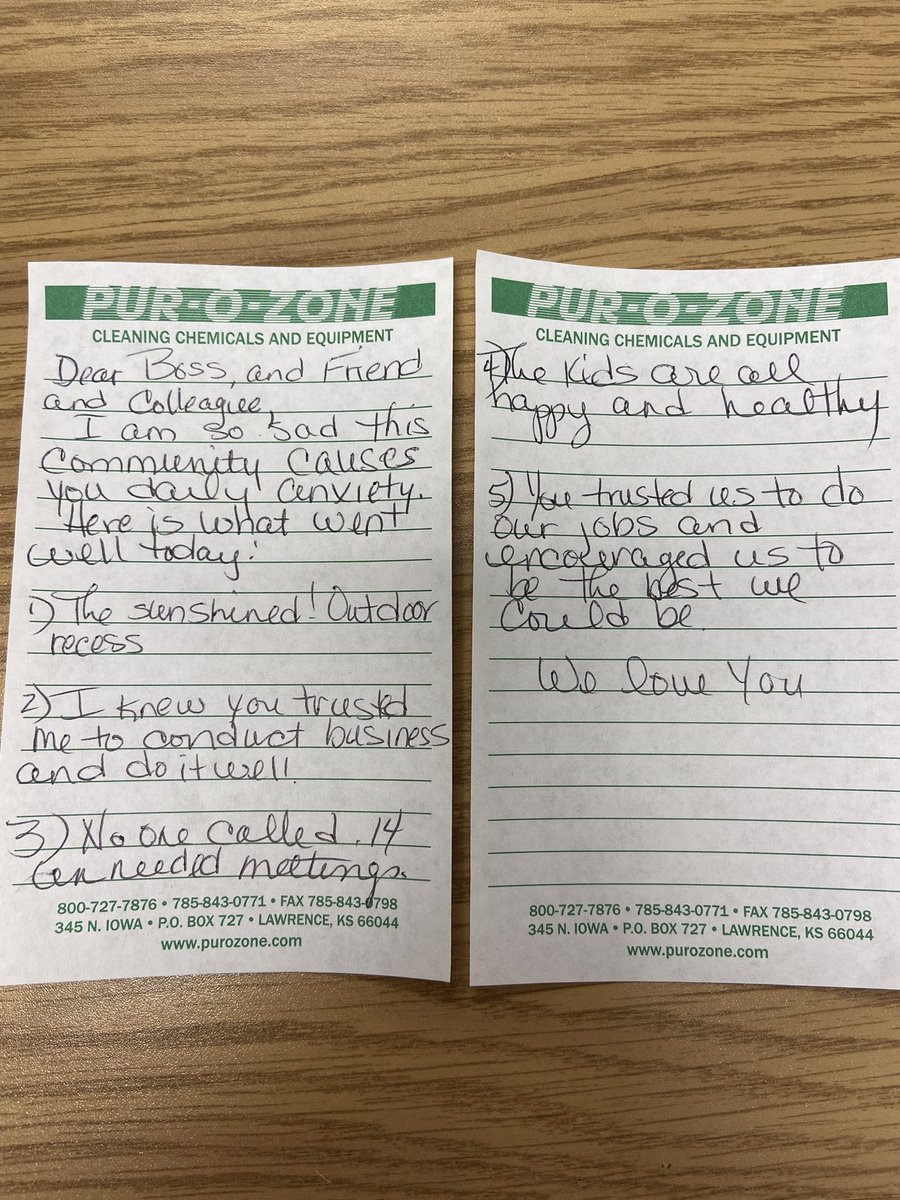 PUR-O-ZONE
CLEANING CHEMICALS AND EQUIPMENT
Dear Boss, and Friend
and Colleague,
I am so sad this
Community causes
you daily anxiety.
Here is what went
well today:
1) The sunshined! Outdoor
recess
2) I knew you trusted
me to conduct business
and do it well.
3) No one called. 14
un needed meetings.
800-727-7876 • 785-843-0771 • FAX 785-843-0798
345 N. IOWA • P.O. BOX 727 • LAWRENCE, KS 66044
www.purozone.com
PUR-O-ZONE
CLEANING CHEMICALS AND EQUIPMENT
4) The kids are all
happy and healthy
5) You trusted us to do
our jobs and
encouraged us to
be the best we
could be.
We love you
800-727-7876 • 785-843-0771 • FAX 785-843-0798
345 N. IOWA • P.O. BOX 727 • LAWRENCE, KS 66044
www.purozone.com